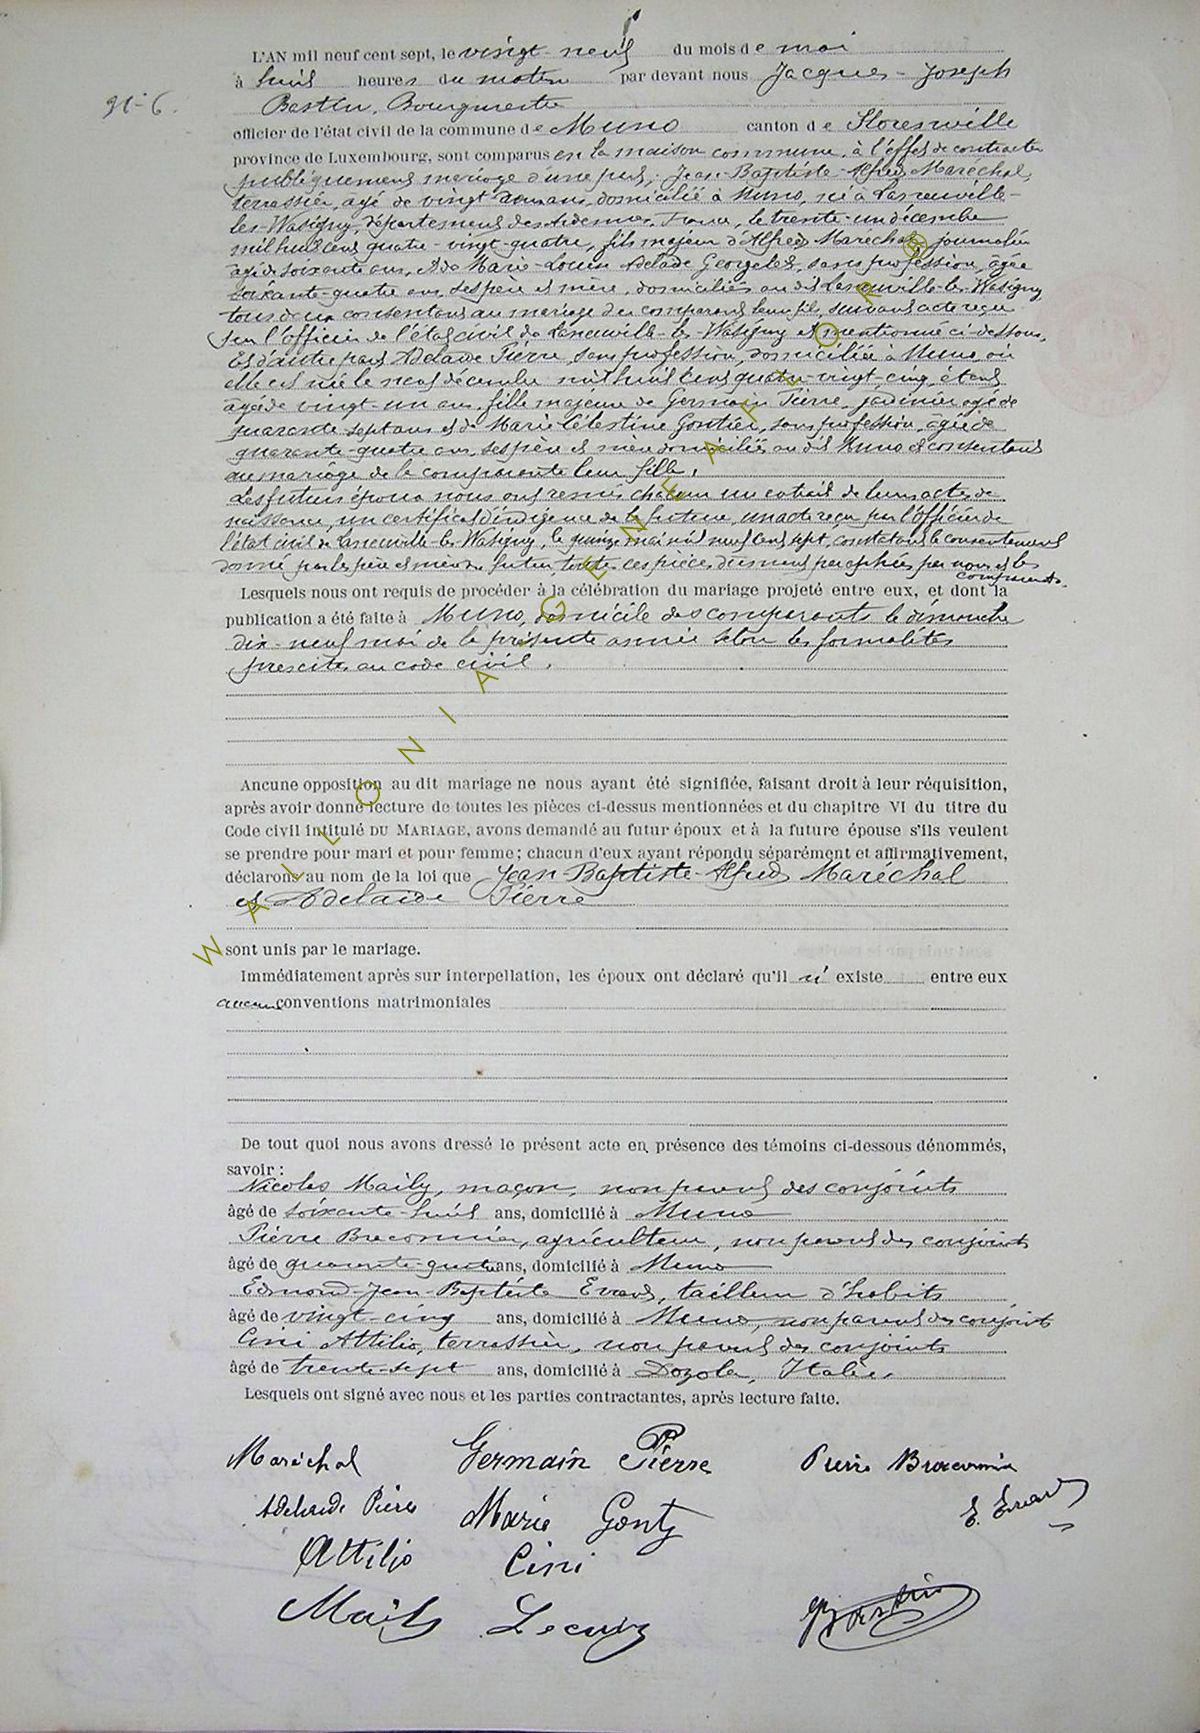 L'AN mil neuf cent sept, le vingt-neuf du mois de mai
à huit heures du matin par devant nous Jacques-Joseph
91-6
Bastin, Bourgmestre
officier de l'état civil de la commune de Muno canton de Florenville
province de Luxembourg, sont comparus en la maison commune, à l'effet de contracter
publiquement mariage d'une part, Jean-Baptiste-Alfred Maréchal,
terrassier, âgé de vingt-deux ans, domicilié à Muno, né à Laneuville-
les-Wasigny, département des Ardennes, France, le trente-un décembre
mil huit cent quatre-vingt-quatre, fils majeur d'Alfred Maréchal, journalier
âgé de soixante ans, et de Marie-Louise Adelade Georgelet, sans profession, âgée
soixante-quatre ans, ses père et mère, domiciliés au dit Laneuville-les-Wasigny
tous deux consentant au mariage du comparant leur fils, suivant acte reçu
par l'officier de l'état civil de Laneuville-les-Wasigny et mentionné ci-dessous,
Et d'autre part Adelaïde Pierre, sans profession, domiciliée à Muno, où
elle est née le neuf décembre mil huit cent quatre-vingt-cinq, étant
âgée de vingt-un ans, fille majeure de Germain Pierre, jardinier âgé de
quarante sept ans et de Marie Célestine Gontier, sans profession, âgée de
quarante-quatre ans, ses père et mère domiciliés au dit Muno et consentant
au mariage de la comparante leur fille.
Les futurs époux nous ont remis chacun un extrait de leurs actes de
naissance, un certificat d'indigence de la future, un acte reçu par l'officier de
l'état civil de Laneuville-les-Wasigny, le quinze mai mil neuf cent sept, constatant le consentement
donné par les père et mère du futur, toutes ces pièces dûment paraphées par nous et les
comparants.
Lesquels nous ont requis de procéder à la célébration du mariage projeté entre eux, et dont la
publication a été faite à Muno, domicile des comparants le dimanche
dix-neuf mai de la présente année selon les formalités
prescites au code civil.
Aucune opposition au dit mariage ne nous ayant été signifiée, faisant droit à leur réquisition,
après avoir donné lecture de toutes les pièces ci-dessus mentionnées et du chapitre VI du titre du
Code civil intitulé DU MARIAGE, avons demandé au futur époux et à la future épouse s'ils veulent
se prendre pour mari et pour femme; chacun d'eux ayant répondu séparément et affirmativement,
déclarons au nom de la loi que Jean-Baptiste-Alfred Maréchal
et Adelaïde Pierre
sont unis par le mariage.
Immédiatement après sur interpellation, les époux ont déclaré qu'il n'existe entre eux
aucune conventions matrimoniales
De tout quoi nous avons dressé le présent acte en présence des témoins ci-dessous dénommés,
savoir :
Nicolas Maily, maçon, non parent des conjoints
âgé de soixante-huit ans, domicilié à Muno
Pierre Braconnier, agriculteur, non parent des conjoints
âgé de quarante-quatre ans, domicilié à Muno
Edmond-Jean-Baptiste Evrard, tailleur d'habits
âgé de vingt-cinq ans, domicilié à Muno, non parent des conjoints
Cini Attilio, terrassier, non parent des conjoints
âgé de trente-sept ans, domicilié à Dozola, Italie.
Lesquels ont signé avec nous et les parties contractantes, après lecture faite.
Maréchal Germain Pierre Pierre Braconnier
Adelaide Pierre Marie Gonty E. Evrard
Attilio Cini
Maily Bastin
WALLONIA GENEAFLOR®